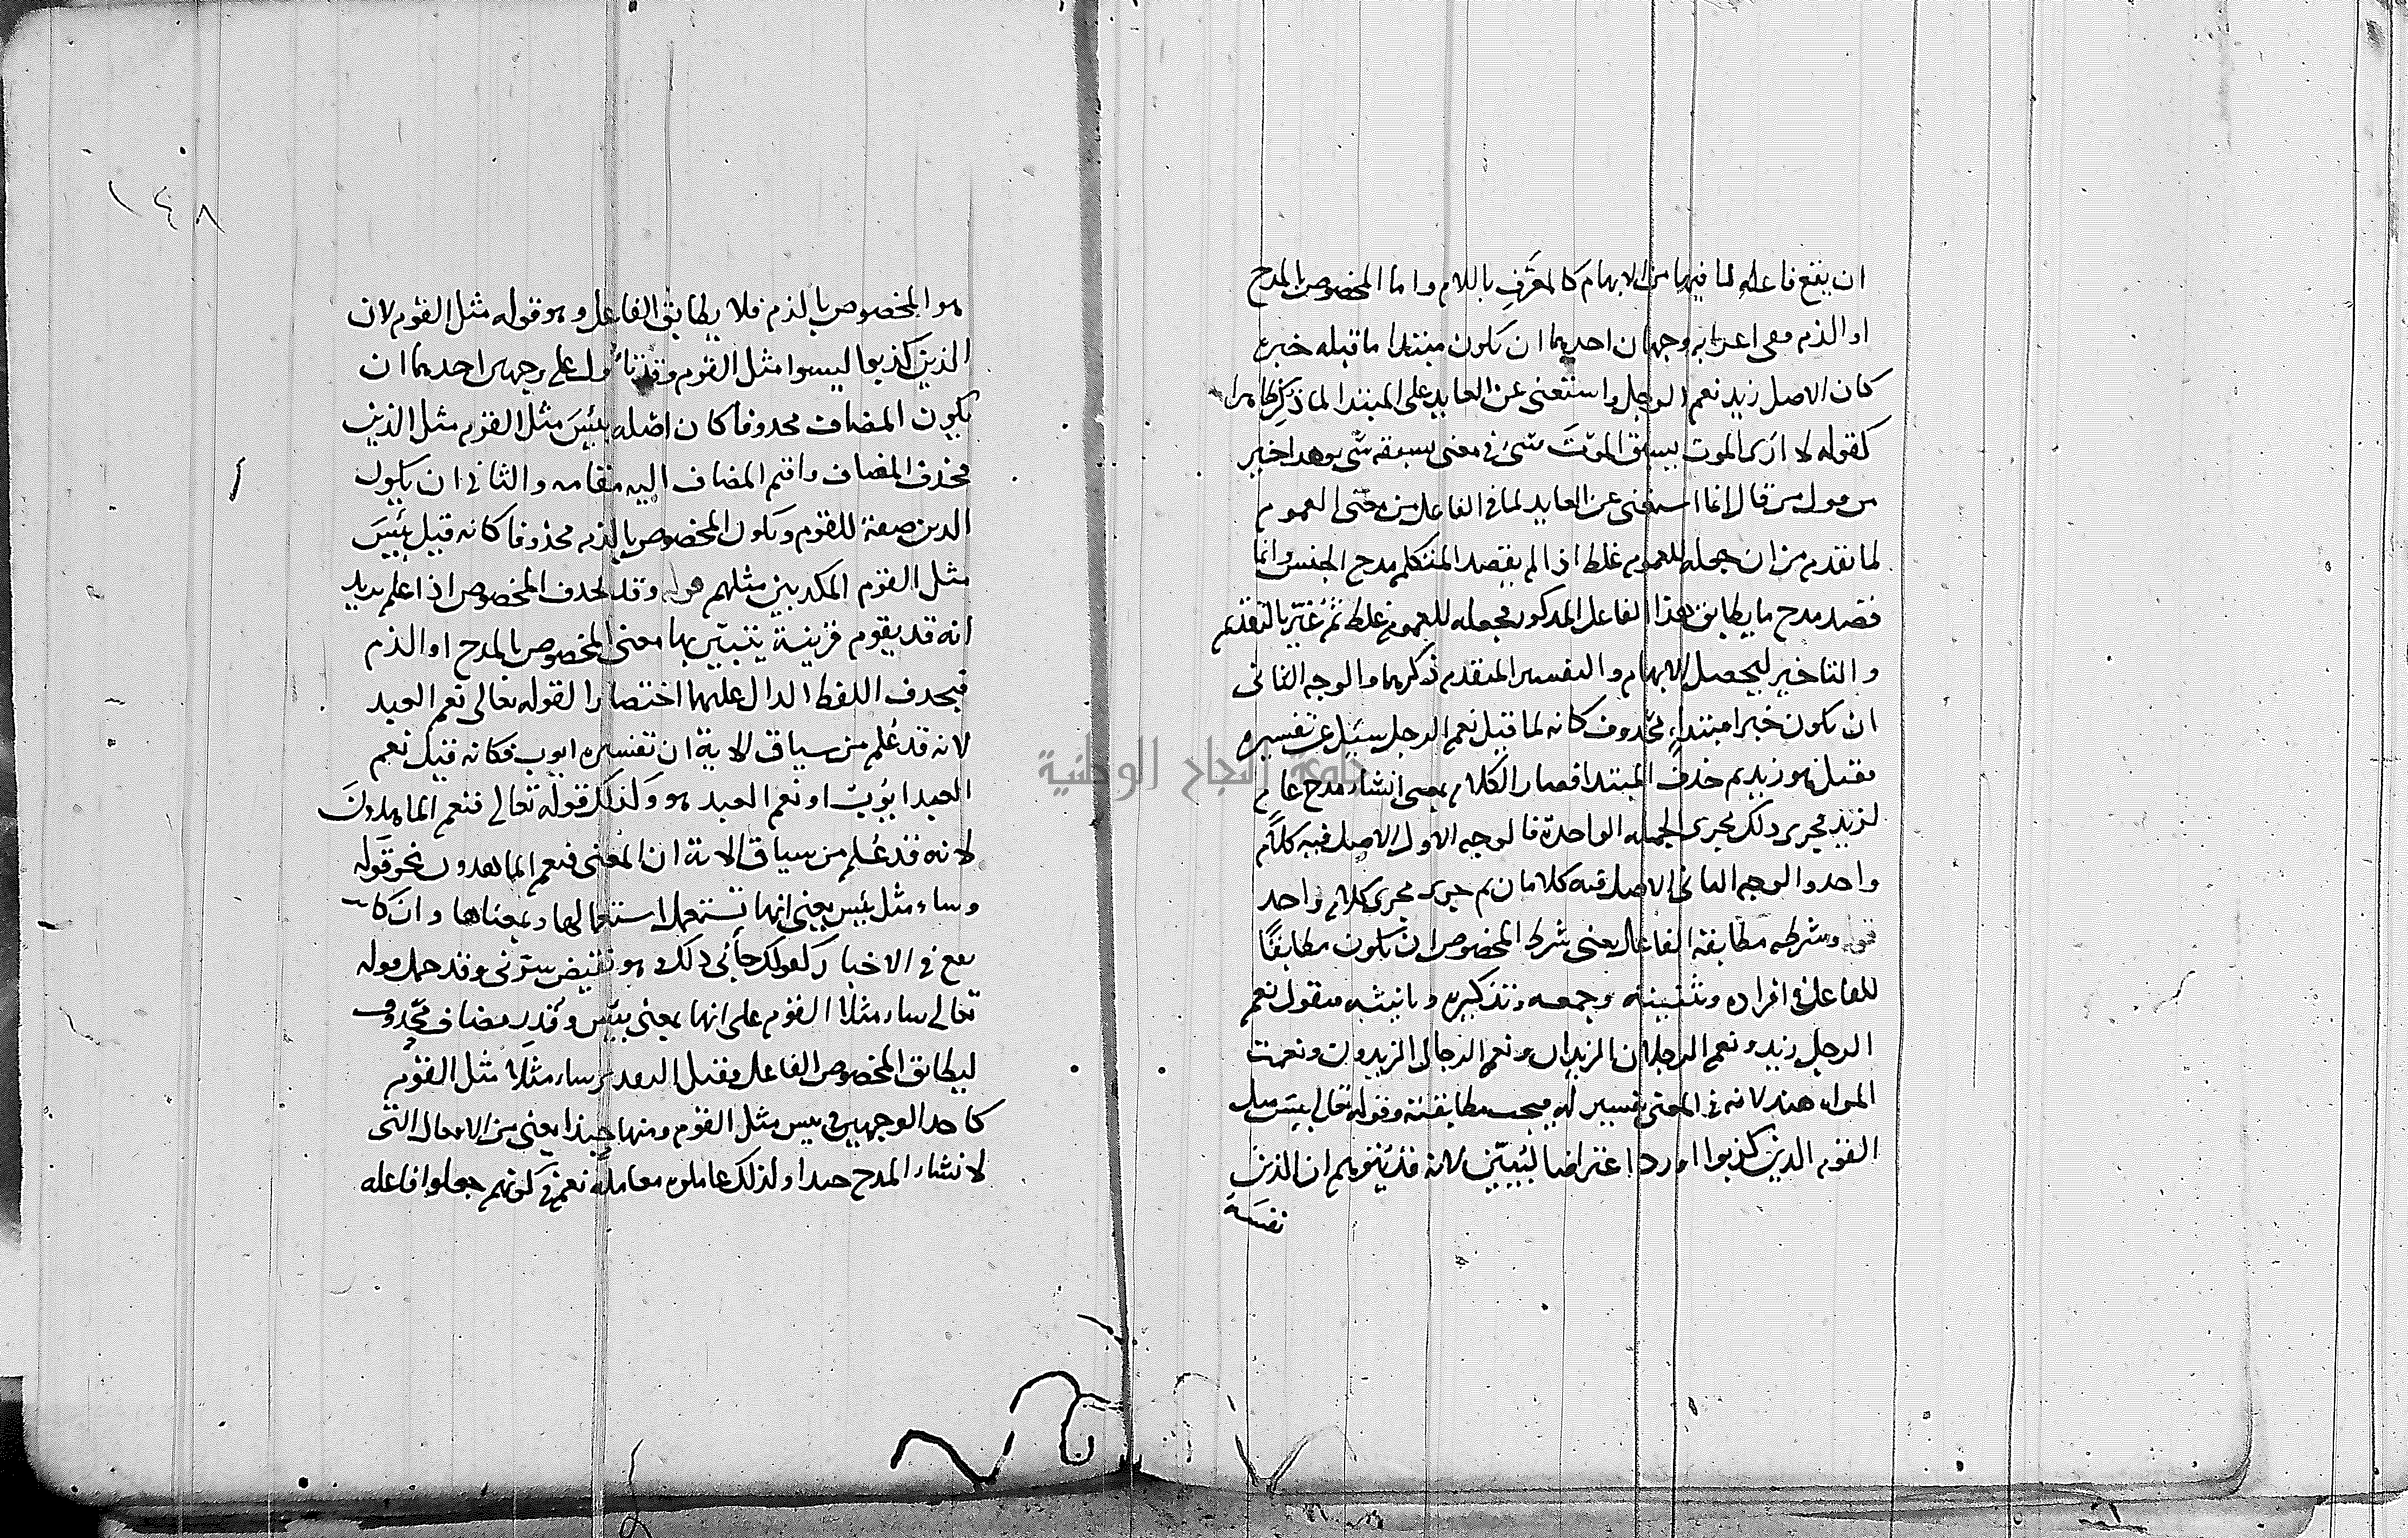 ان يقع فاعله لما فيها من الابهام كالمعرف باللام واما المخصوص بالمدح
او الذم ففى اعرابه وجهان احدهما ان يكون مبتدا ما قبله خبره
كان الاصل زيد نعم الرجل واستغنى عن العايد على المبتدا لما ذكر ظاهرا
كقوله لا ارى الموت يسبق الموت شئ فى معنى يسبقه شى وهذا خير
من قول من قال انما استغنى عن العايد لما فى الفاعل من معنى العموم
لما تقدم من ان جعله للعموم غلط اذا لم يقصد المتكلم مدح الجنس وانما
قصد مدح ما يطابق هذا الفاعل المذكور فجعله للعموم غلط ثم غير بالتقديم
والتاخير ليحصل الابهام والتفسير المتقدم ذكرهما والوجه الثانى
ان يكون خبر مبتداء محذوف كانه لما قيل نعم الرجل سئل عن تفسيره
فقيل هو زيد ثم حذف المبتدا فصار الكلام بمعنى انشاء مدح عام
لزيد فجرى ذلك مجرى الجمله الواحدة فالوجه الاول الاصل فيه كلام
واحد والوجه الثانى الاصل فيه كلامان ثم جرى مجرى كلام واحد
قوله وشرطه مطابقة الفاعل يعنى شرط المخصوص ان يكون مطابقا
للفاعل فى افراده وتثنيته وجمعه وتذكيره وتانيثه فتقول نعم
الرجل زيد ونعم الرجلان الزيدان ونعم الرجال الزيدون ونعمت
المراه هند لانه فى المعنى تفسير له فيجب مطابقته وقوله تعالى بئس مثل
القوم الذين كذبوا اورد اعتراضا ليبين لانه قد يتوهم ان الذين
نفسه
١٤٨
هو المخصوص بالذم فلا يطابق الفاعل وهو قوله مثل القوم لان
الذين كذبوا ليسوا مثل القوم وقد تاول على وجهين احدهما ان
يكون المضاف محدوفا كان اصله بئس مثل القوم مثل الذين
فحذف المضاف واقيم المضاف اليه مقامه والثانى ان يكون
الذين صفة للقوم ويكون المخصوص بالذم محذوفا كانه قيل بئس
مثل القوم المكذبين مثلهم قوله وقد يحذف المخصوص اذا علم يريد
انه قد يقوم قرينة يتبين بها معنى المخصوص بالمدح او الذم
فيحذف اللفظ الدال عليهما اختصارا لقوله تعالى نعم العبد
لانه قد علم من سياق الاية ان تفسيره ايوب فكانه قيل نعم
العبد ايوب او نعم العبد هو وكذلك قوله تعالى فنعم الماهدون
لانه قد علم من سياق الاية ان المعنى فنعم الماهدون نحن قوله
وساء مثل بئس يعنى انها تستعمل استعمالها وبمعناها وان كا
يقع فى الاخبار كقولك جانى ذلك وهو نقيض سرنى وقد حمل قوله
تعالى ساء مثلا القوم على انها بمعنى بئس وقدر مضاف محذوف
ليطابق المخصوص الفاعل وقيل التقدير ساء مثلا مثل القوم
كاحد الوجهين فى بئس مثل القوم ومنها حبذا يعنى من الافعال التى
لانشاء المدح حبذا ولذلك عاملوه معاملة نعم فى كونهم جعلوا فاعله
جامعة النجاح الوطنية